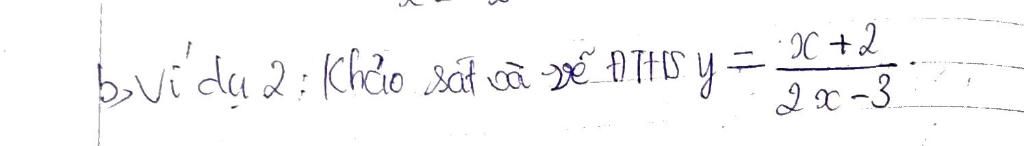 b, Ví dụ 2: Khảo sát và vẽ ĐTHS y = \frac{x+2}{2x-3}.